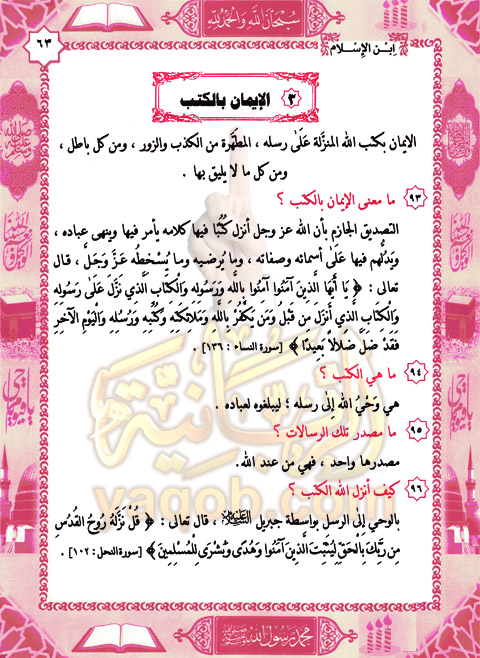 سُبْحَانَ اللَّهِ وَالْحَمْدُ لِلَّهِ
ابن الإسلام
٦٣
٣ الإيمان بالكتب
الايمان بكتب الله المنزلة عَلَىٰ رسله ، المطهَّرة من الكذب والزور ، ومن كل باطل ،
ومن كل ما لا يليق بها .
٩٣ ما معنى الإيمان بالكتب ؟
التصديق الجازم بأن الله عز وجل أنزل كُتُبًا فيها كلامه يأمر فيها وينهى عباده ،
ويَدُلُّهم فيها عَلَىٰ أسمائه وصفاته ، وما يُرضيه وما يُسْخِطُه عَزَّ وَجَلَّ ، قال
تعالى : ﴿ يَا أَيُّهَا الَّذِينَ آمَنُوا آمِنُوا بِاللَّهِ وَرَسُولِهِ وَالْكِتَابِ الَّذِي نَزَّلَ عَلَى رَسُولِهِ
وَالْكِتَابِ الَّذِي أَنْزَلَ مِن قَبْلُ وَمَن يَكْفُرْ بِاللَّهِ وَمَلَائِكَتِهِ وَكُتُبِهِ وَرُسُلِهِ وَالْيَوْمِ الْآخِرِ
فَقَدْ ضَلَّ ضَلَالًا بَعِيدًا ﴾ [ سورة النساء : ١٣٦ ] .
٩٤ ما هي الكتب ؟
هي وَحْيُ الله إلى رسله ؛ ليبلغوه لعباده .
٩٥ ما مصدر تلك الرسالات ؟
مصدرها واحد ، فهي من عند الله.
٩٦ كيف أنزل الله الكتب ؟
بالوحي إلى الرسل بواسطة جبريل عليه السلام ، قال تعالى : ﴿ قُلْ نَزَّلَهُ رُوحُ الْقُدُسِ
مِن رَبِّكَ بِالْحَقِّ لِيُثَبِّتَ الَّذِينَ آمَنُوا وَهُدًى وَبُشْرَى لِلْمُسْلِمِينَ ﴾ [ سورة النحل : ١٠٢ ] .
yaqob.com
محمد رسول الله